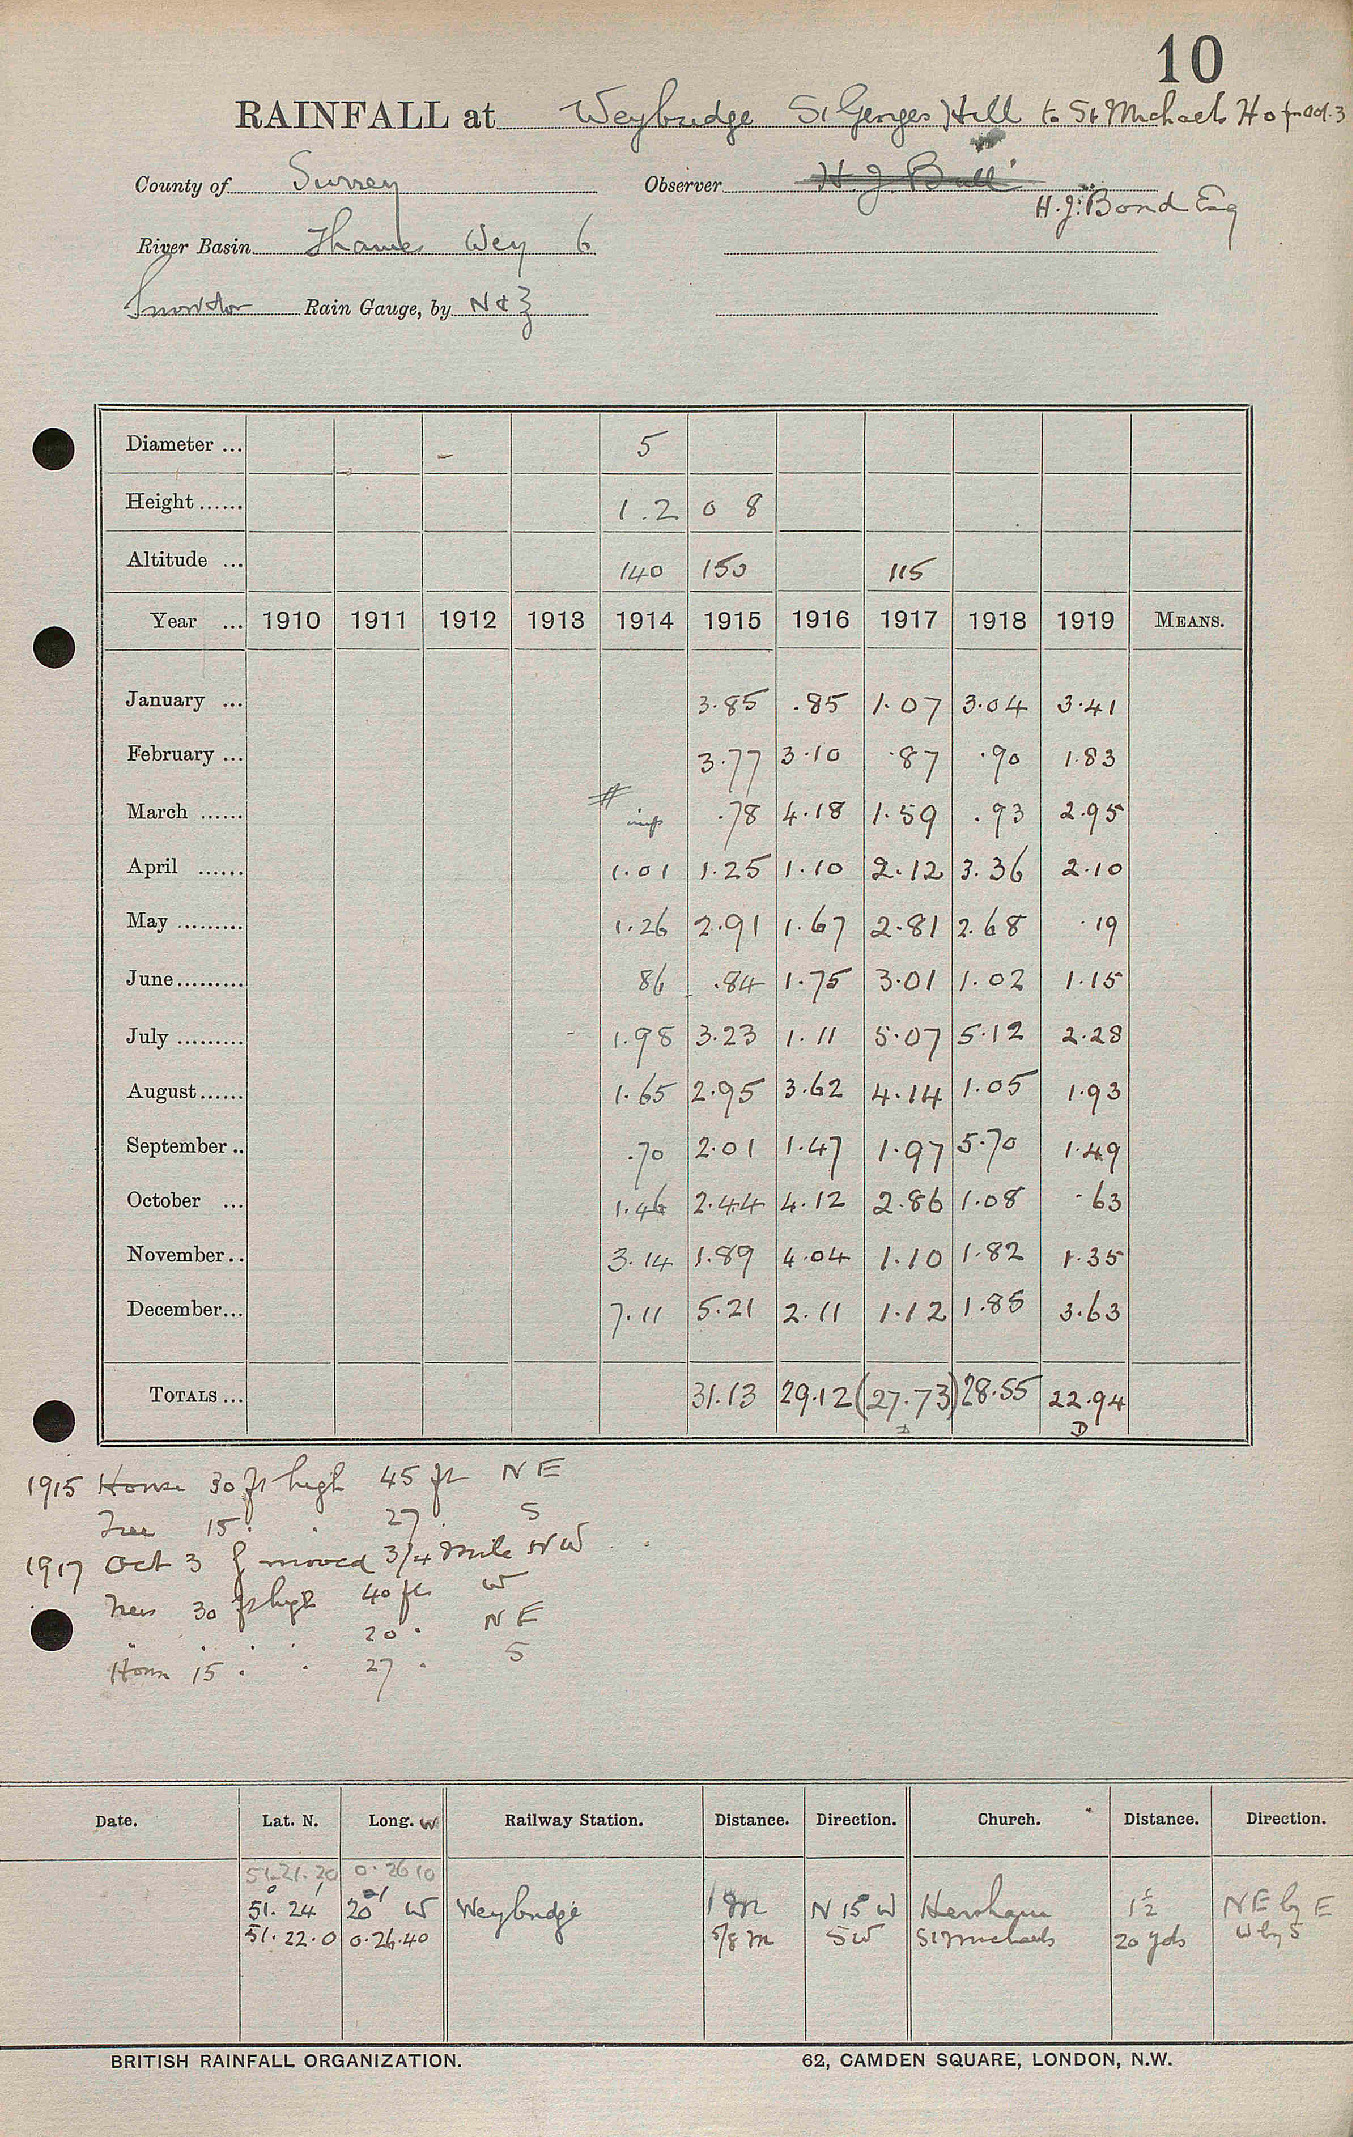 10
RAINFALL at Weybridge St Georges Hill to St Michaels Ho fr Oct. 3
County of Surrey Observer H. J. Bull
H. J. Bond Esq
River Basin Thames Wey 6
Snowdon Rain Gauge, by N & Z
Diameter ... 5
Height ...... 1.2 0 8
Altitude ... 140 150 115
Year ... 1910 1911 1912 1913 1914 1915 1916 1917 1918 1919 MEANS.
January ... 3.85 .85 1.07 3.04 3.41
February ... 3.77 3.10 .87 .90 1.83
March ...... .78 4.18 1.59 .93 2.95
April ...... 1.01 1.25 1.10 2.12 3.36 2.10
May ......... 1.26 2.91 1.67 2.81 2.68 .19
June ......... 86 .84 1.75 3.01 1.02 1.15
July ......... 1.98 3.23 1.11 5.07 5.12 2.28
August ...... 1.65 2.95 3.62 4.14 1.05 1.93
September .. .70 2.01 1.47 1.97 5.70 1.49
October ... 1.46 2.44 4.12 2.86 1.08 .63
November .. 3.14 1.89 4.04 1.10 1.82 1.35
December ... 7.11 5.21 2.11 1.12 1.85 3.63
TOTALS ... 31.13 29.12 (27.73) 28.55 22.94
D D
1915 House 30 ft high 45 ft NE
Tree 15 . . 27 . S
1917 Oct 3 g moved 3/4 mile NW
Trees 30 ft high 40 ft W
" . . . 20 . NE
House 15 . . 27 . S
Date. Lat. N. Long. W Railway Station. Distance. Direction. Church. Distance. Direction.
51.21.20 0.26 10
51° 24' 20" W Weybridge 1 m N 15° W Hersham 1½ NE by E
51.22.0 0.26.40 5/8 m SW St Michaels 20 yds W by S
BRITISH RAINFALL ORGANIZATION. 62, CAMDEN SQUARE, LONDON, N.W.